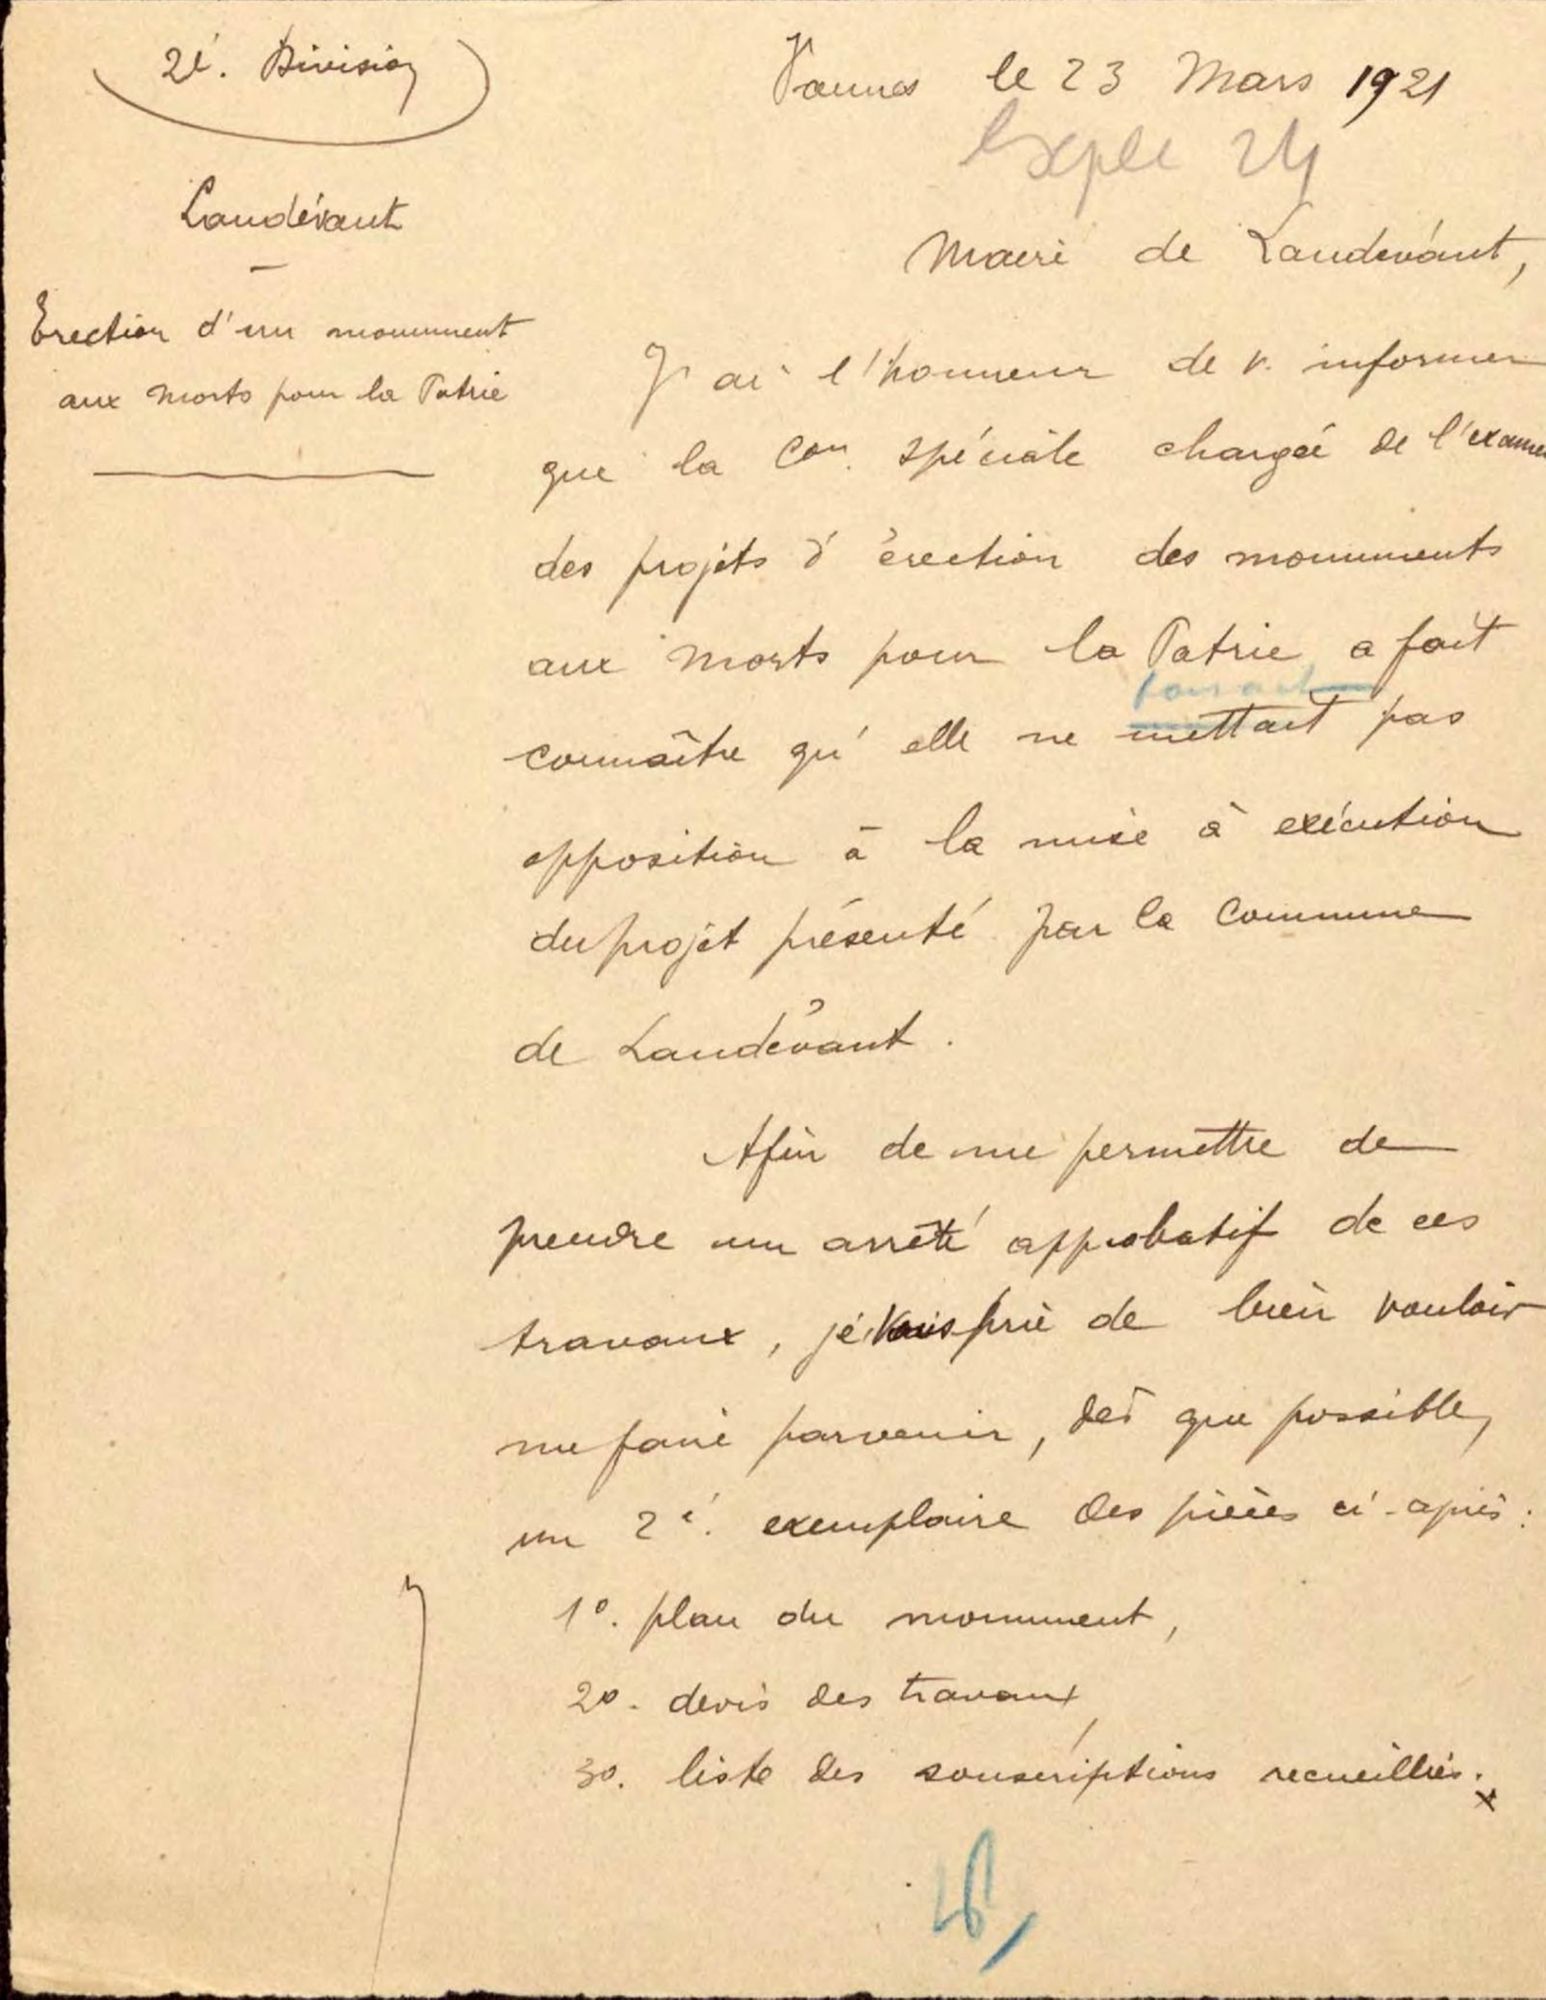 2è. Division
Vannes le 23 Mars 1921
Landévant
Maire de Landévant,
Erection d'un monument
aux morts pour la Patrie
J'ai l'honneur de v. informer
que la Con. spéciale chargée de l'examen
des projets d'érection des monuments
aux morts pour la Patrie a fait
faisait
connaître qu'elle ne mettait pas
opposition à la mise à exécution
du projet présenté par la Commune
de Landévant.
Afin de me permettre de
prendre un arrêté approbatif de ces
travaux, je vous prie de bien vouloir
me faire parvenir, dès que possible,
un 2è. exemplaire des pièces ci-après :
1º. plan du monument,
2º. devis des travaux,
3º. liste des souscriptions recueillies.